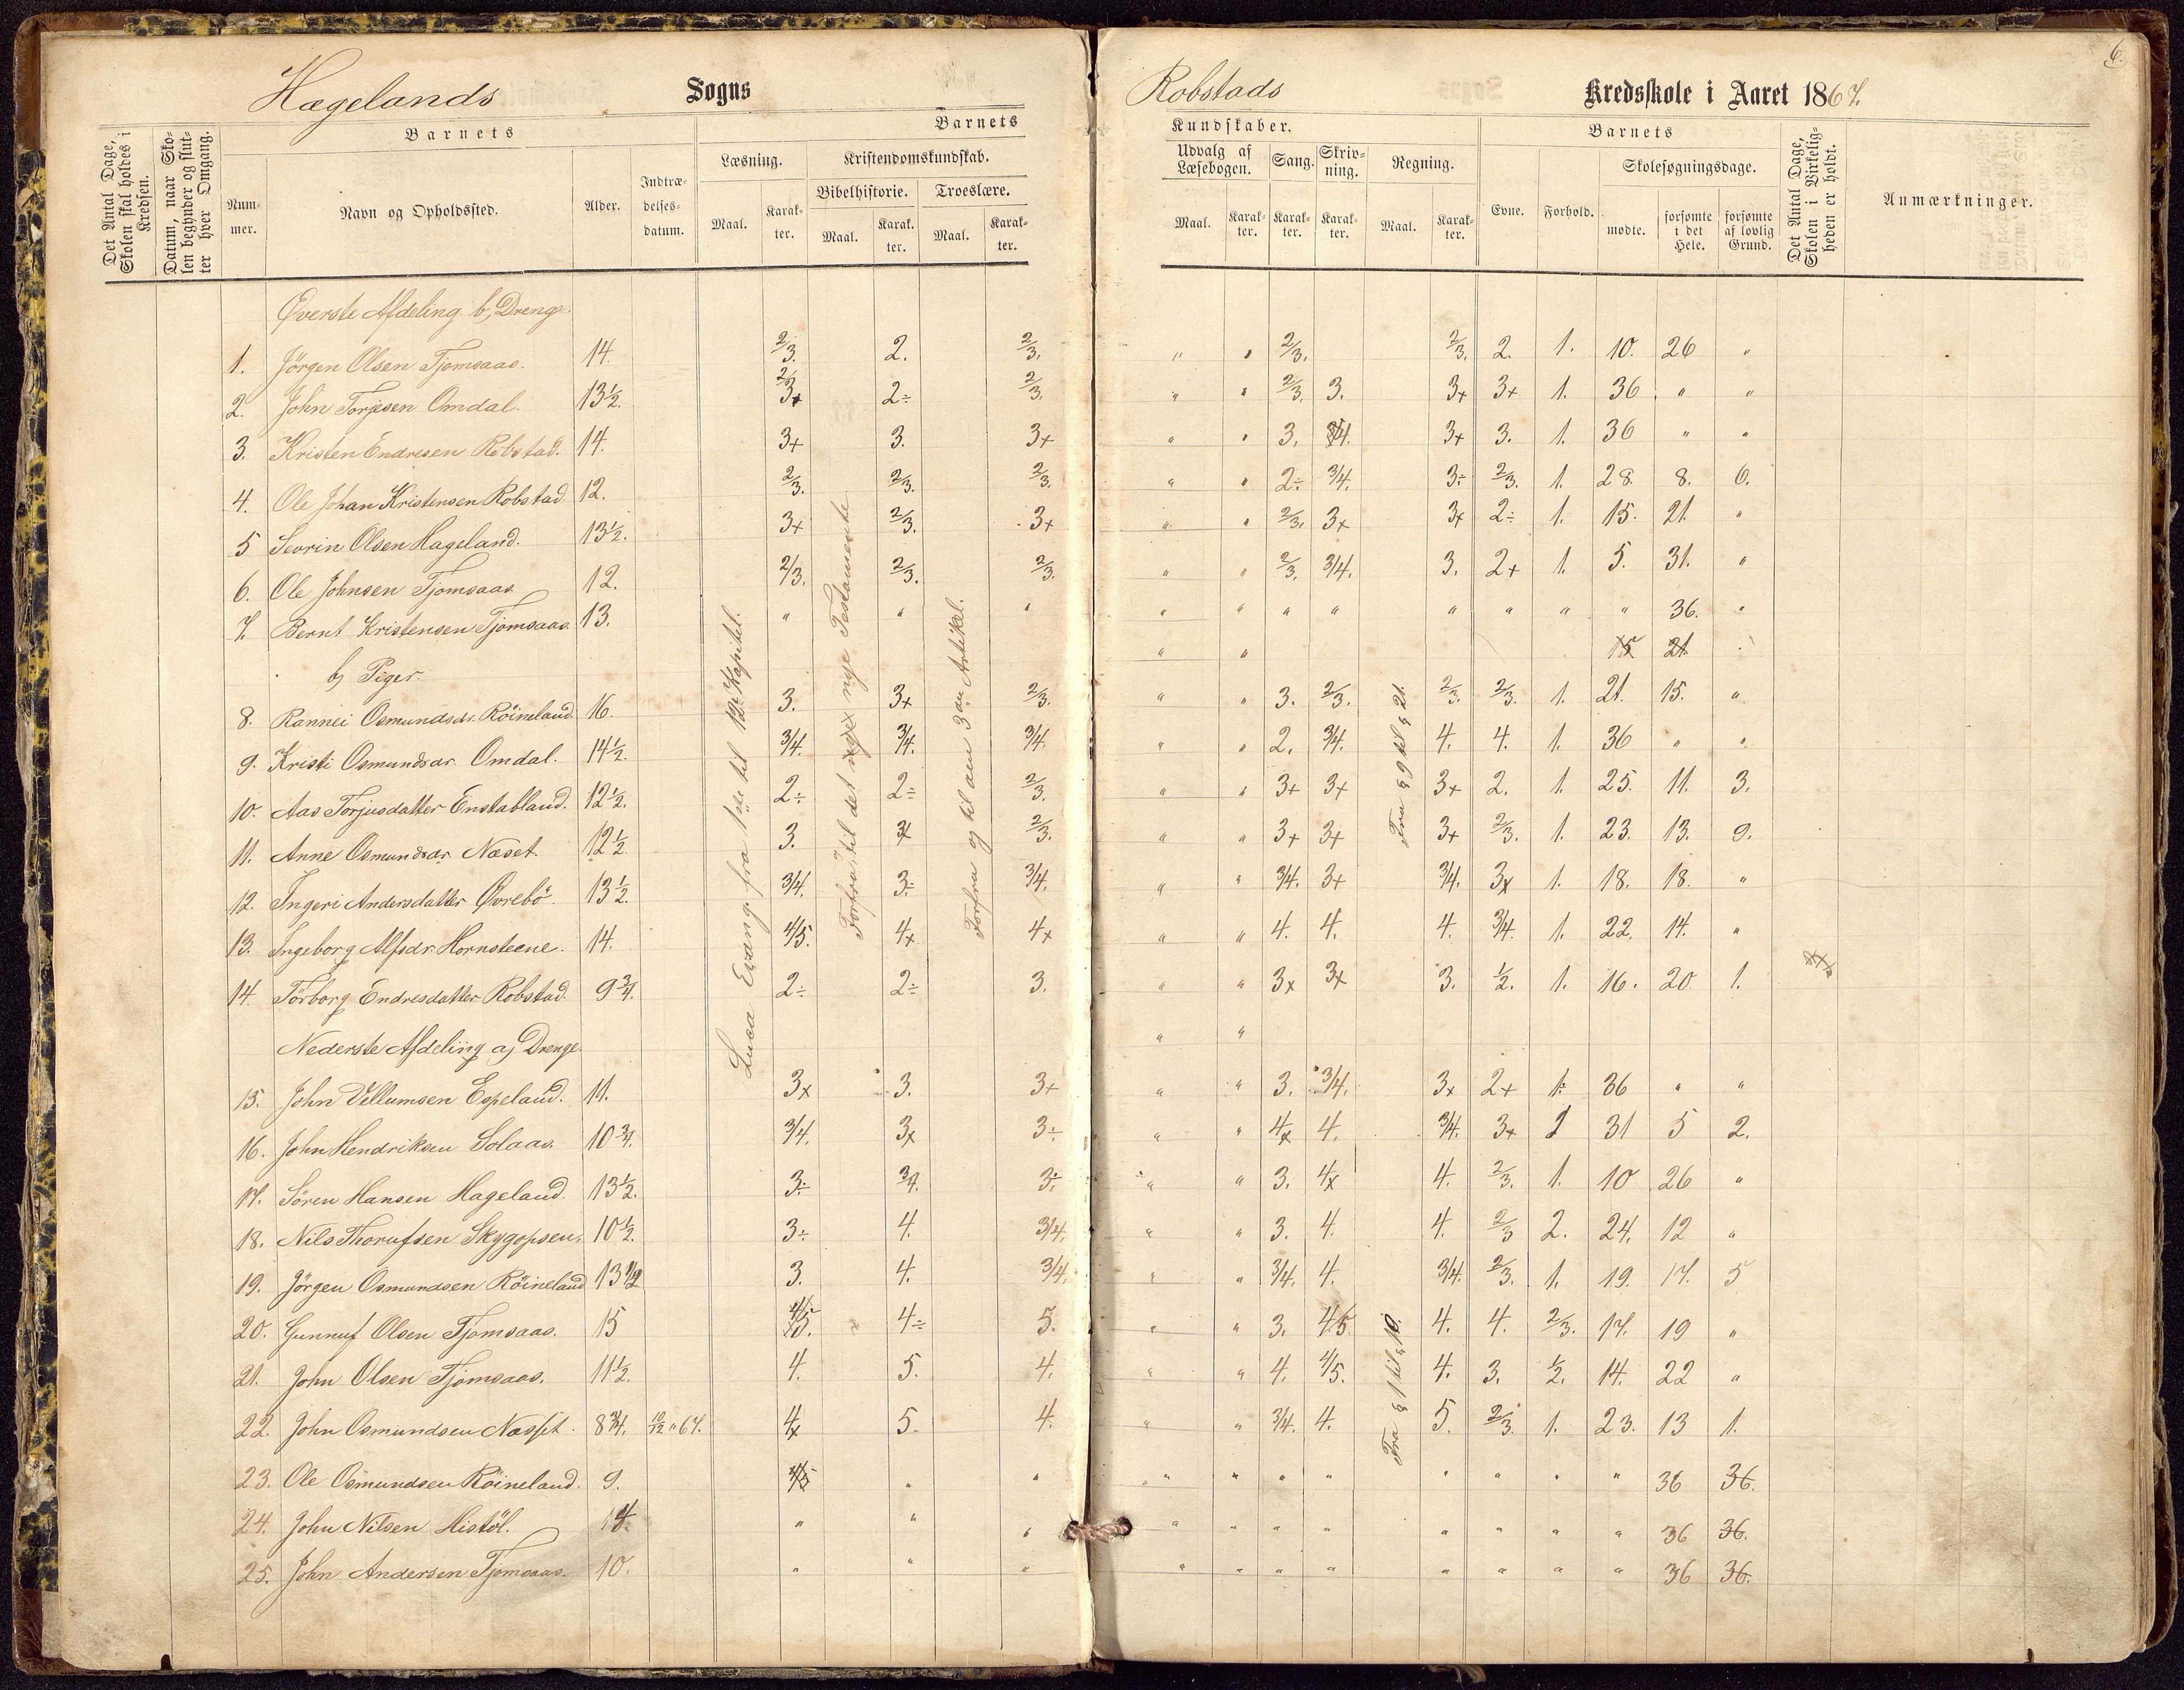 6.
Hægelands Sogns Robstads Kredsskole i Aaret 1867.
Det Antal Dage, Skolen skal holdes i Kredsen.
Datum, naar Skolen begynder og slutter hver Omgang.
Barnets
Nummer.
Navn og Opholdssted.
Alder.
Indtrædelsesdatum.
Barnets
Læsning.
Maal.
Karakter.
Kristendomskundskab.
Bibelhistorie.
Maal.
Karakter.
Troeslære.
Maal.
Karakter.
Kundskaber.
Udvalg af Læsebogen.
Maal.
Karakter.
Sang.
Karakter.
Skrivning.
Karakter.
Regning.
Maal.
Karakter.
Barnets
Evne.
Forhold.
Skolesøgningsdage.
mødte.
forsømte i det Hele.
forsømte af lovlig Grund.
Det Antal Dage, Skolen i Virkeligheden er holdt.
Anmærkninger.
Øverste Afdeling b, Drenge.
1. Jörgen Olsen Tjomsaas. 14. 2/3. 2. 2/3. " " 2/3. 2/3. 2. 1. 10. 26 "
2. John Torjesen Omdal. 13½. 3+ 2÷ 2/3. " " 2/3. 3. 3+ 3+ 1. 36. " "
3. Kristen Endresen Robstad. 14. 3+ 3. 3+ " " 3. 4. 3+ 3. 1. 36 " "
4. Ole Johan Kristensen Robstad 12. 2/3. 2/3. 2/3. " " 2÷ 3/4. 3÷ 2/3. 1. 28. 8. 6.
5 Sevrin Olsen Hageland. 13½. 3+ 2/3. 3+ " " 2/3. 3x 3x 2÷ 1. 15. 21. "
6. Ole Johnsen Tjomsaas 12. 2/3. 2/3. 2/3. " " 2/3. 3/4. 3. 2+ 1. 5. 31. "
7. Bernt Kristensen Tjomsaas. 13. " " " " " " " " " " " 36. "
b) Piger. " " 15 21
8. Rannei Osmundsdr. Röineland. 16. 3. 3+ 2/3. " " 3. 2/3. 2/3. 2/3. 1. 21. 15. "
9. Kristi Osmundsdr. Omdal. 14½. 3/4. 3/4. 3/4. " " 2. 3/4. 4. 4. 1. 36 " "
10. Aas Torjusdatter Enstabland. 12½. 2÷ 2÷ 2/3. " " 3+ 3+ 3+ 2. 1. 25. 11. 3.
11. Anne Osmundsdr. Næset 12½. 3. 3x 2/3. " " 3+ 3+ 3+ 2/3. 1. 23. 13. 9.
12. Ingeri Andersdatter Øvrebö. 13½. 3/4. 3÷ 3/4. " " 3/4. 3+ 3/4. 3x 1. 18. 18. "
13. Ingeborg Alfsdr. Hornsteene. 14. 4/5. 4x 4x " " 4. 4. 4. 3/4. 1. 22. 14. "
14. Törborg Endresdatter Robstad. 9¾. 2÷ 2÷ 3. " " 3x 3x 3. ½. 1. 16. 20 1.
Nederste Afdeling a) Drenge. " "
15. John Vellumsen Espeland. 11. 3x 3. 3+ " " 3. 3/4. 3x 2+ 1. 36 " "
16. John Hendriksen Solaas. 10¾. 3/4. 3x 3÷ " " 4x 4. 3/4. 3+ 1 31 5 2.
17. Sören Hansen Hageland. 13½. 3÷ 3/4. 3÷ " " 3. 4x 4. 2/3. 1. 10 26 "
18. Nils Thorufsen 10½. 3÷ 4. 3/4. " " 3. 4. 4. 2/3 2. 24. 12 "
19. Jörgen Osmundsen Röineland 13½ 3. 4. 3/4. " " 3/4. 4. 3/4. 2/3. 1. 19. 17. 5
20. Gunnuf Olsen Tjomsaas. 15 4/5. 4÷ 5. " " 3. 4/5 4. 4. 2/3. 17. 19 "
21. John Olsen Tjomsaas. 11½. 4. 5. 4. " " 4. 4/5. 4. 3. ½. 14. 22 "
22. John Osmundsen Næsset. 8¾. 10/12 " 67. 4x 5. 4. " " 3/4. 4. 5. 2/3. 1. 23. 13 1.
23. Ole Osmundsen Röineland. 9. 4/5 " " " " " " " " " " 36 36.
24. John Nilsen Histöl. 14. " " " " " " " " " " " 36 36.
25. John Andersen Tjomsaas. 10. " " " " " " " " " " " 36 36.
Luca Evang. fra 1ste til 12te Kapitel.
Forfra til det nye Testamente
Forfra og til den 3die Artikel.
Fra § 9 til § 21.
Fra § 1 til § 10.